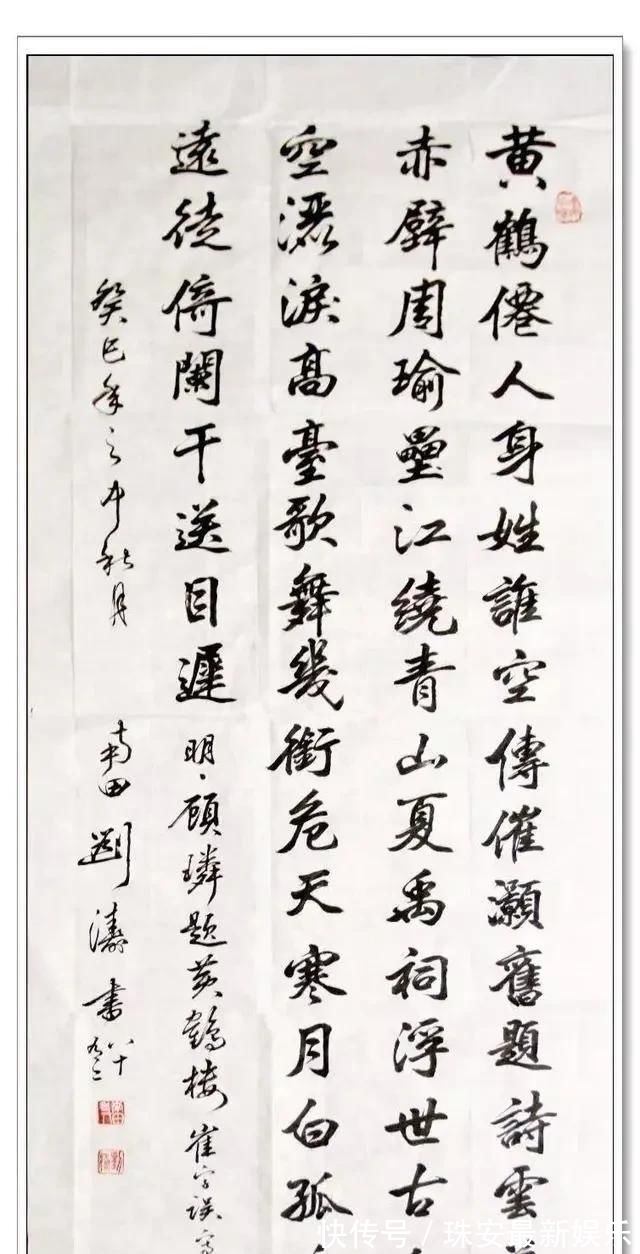 黄鶴僊人身姓誰空傳催灝舊題詩雲
赤壁周瑜壘江繞青山夏禹祠浮世古
空灑淚高臺歌舞幾銜危天寒月白孤
遠徒倚闌干送目遲
明、顧璘題黄鶴楼 崔字誤寫
癸巳年之中秋月
南田劉濤書
快传号 / 珠安最新娱乐